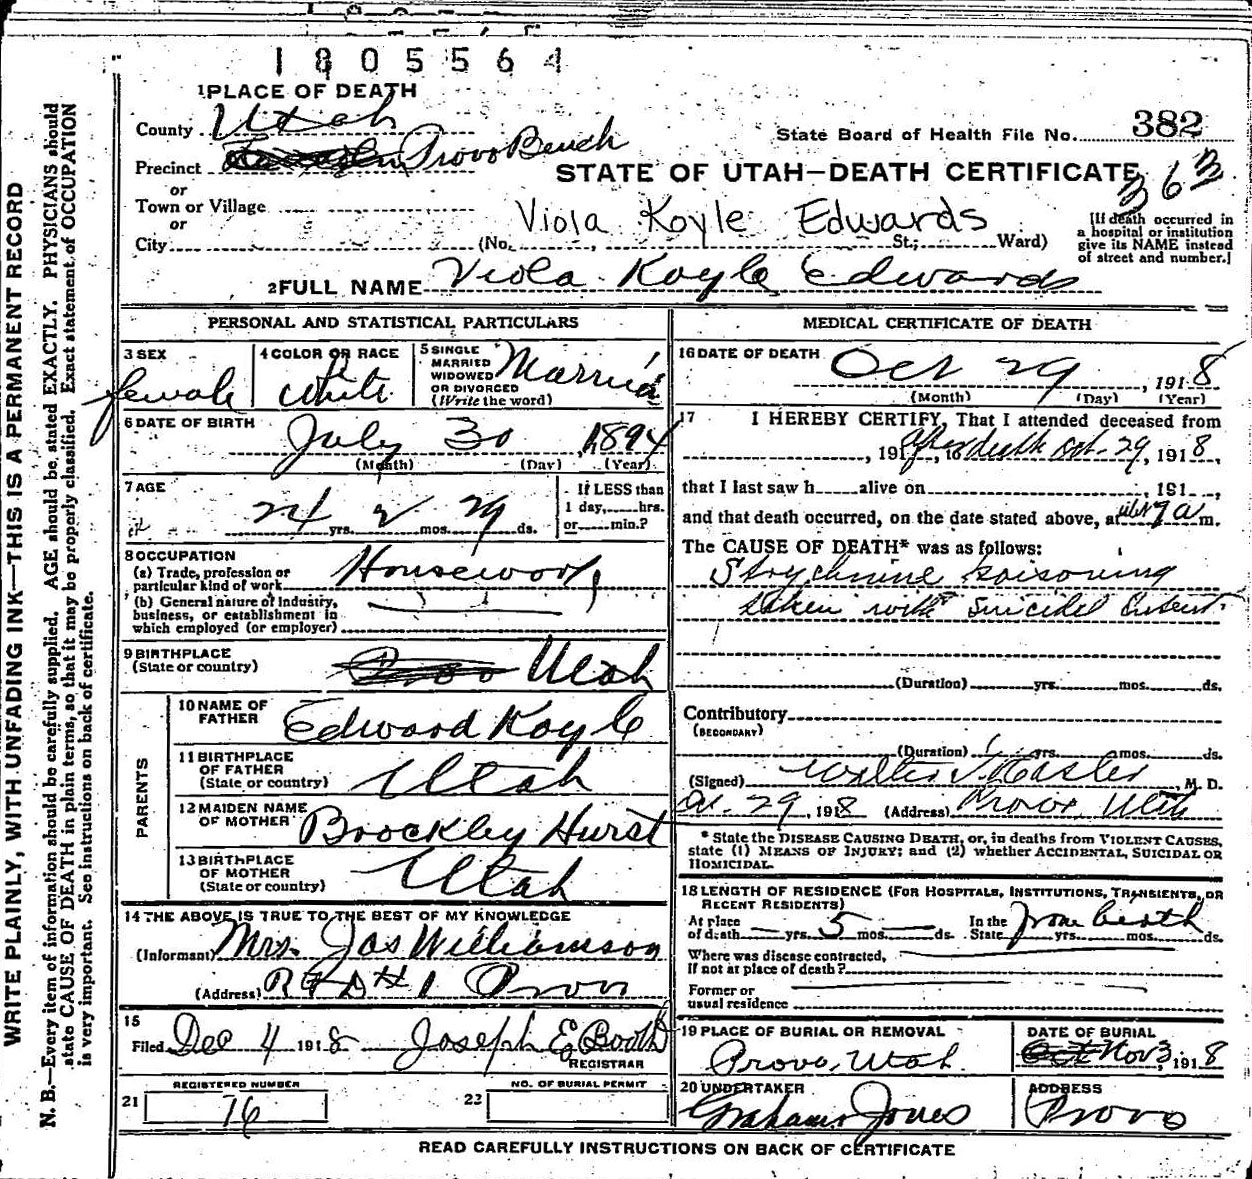 1805564
1 PLACE OF DEATH
County Utah
State Board of Health File No. 382
Precinct Provo Bench
STATE OF UTAH—DEATH CERTIFICATE
363
or
Town or Village
or
City (No. , St.; Ward)
Viola Koyle Edwards
[If death occurred in
a hospital or institution
give its NAME instead
of street and number.]
2 FULL NAME Viola Koyle Edwards
PERSONAL AND STATISTICAL PARTICULARS
3 SEX female
4 COLOR OR RACE White
5 SINGLE
MARRIED
WIDOWED
OR DIVORCED
(Write the word) Married
6 DATE OF BIRTH July 30, 1894
(Month) (Day) (Year)
7 AGE
24 yrs. 2 mos. 29 ds.
If LESS than
1 day, hrs.
or min.?
8 OCCUPATION
(a) Trade, profession or
particular kind of work Housework
(b) General nature of industry,
business, or establishment in
which employed (or employer)
9 BIRTHPLACE
(State or country) Provo Utah
PARENTS
10 NAME OF
FATHER Edward Koyle
11 BIRTHPLACE
OF FATHER
(State or country) Utah
12 MAIDEN NAME
OF MOTHER Brockley Hurst
13 BIRTHPLACE
OF MOTHER
(State or country) Utah
14 THE ABOVE IS TRUE TO THE BEST OF MY KNOWLEDGE
(Informant) Mrs. Jas Williamson
(Address) RFD # 1 Provo
15
Filed Dec 4 1918 Joseph E Booth
REGISTRAR
REGISTERED NUMBER
21 76
NO. OF BURIAL PERMIT
22
MEDICAL CERTIFICATE OF DEATH
16 DATE OF DEATH Oct 29, 1918
(Month) (Day) (Year)
17 I HEREBY CERTIFY, That I attended deceased from
, 191 after, to death Oct. 29, 1918,
that I last saw h alive on , 191 ,
and that death occurred, on the date stated above, at m.
The CAUSE OF DEATH* was as follows:
Strychnine poisoning
taken with suicidal intent.
(Duration) yrs. mos. ds.
Contributory
(SECONDARY)
(Duration) yrs. mos. ds.
(Signed) Walter T. Hasler, M. D.
Oct. 29, 1918 (Address) Provo, Utah
* State the DISEASE CAUSING DEATH, or, in deaths from VIOLENT CAUSES,
state (1) MEANS OF INJURY; and (2) whether ACCIDENTAL, SUICIDAL OR
HOMICIDAL.
18 LENGTH OF RESIDENCE (FOR HOSPITALS, INSTITUTIONS, TRANSIENTS, OR
RECENT RESIDENTS)
At place
of death — yrs. 5 mos. — ds.
In the
State from birth yrs. mos. ds.
Where was disease contracted,
if not at place of death?
Former or
usual residence
19 PLACE OF BURIAL OR REMOVAL
Provo, Utah
DATE OF BURIAL
Oct Nov 3, 1918
20 UNDERTAKER
Graham Jones
ADDRESS
Provo
READ CAREFULLY INSTRUCTIONS ON BACK OF CERTIFICATE
WRITE PLAINLY, WITH UNFADING INK—THIS IS A PERMANENT RECORD
N. B.—Every item of information should be carefully supplied. AGE should be stated EXACTLY. PHYSICIANS should
state CAUSE OF DEATH in plain terms, so that it may be properly classified. Exact statement of OCCUPATION
is very important. See instructions on back of certificate.